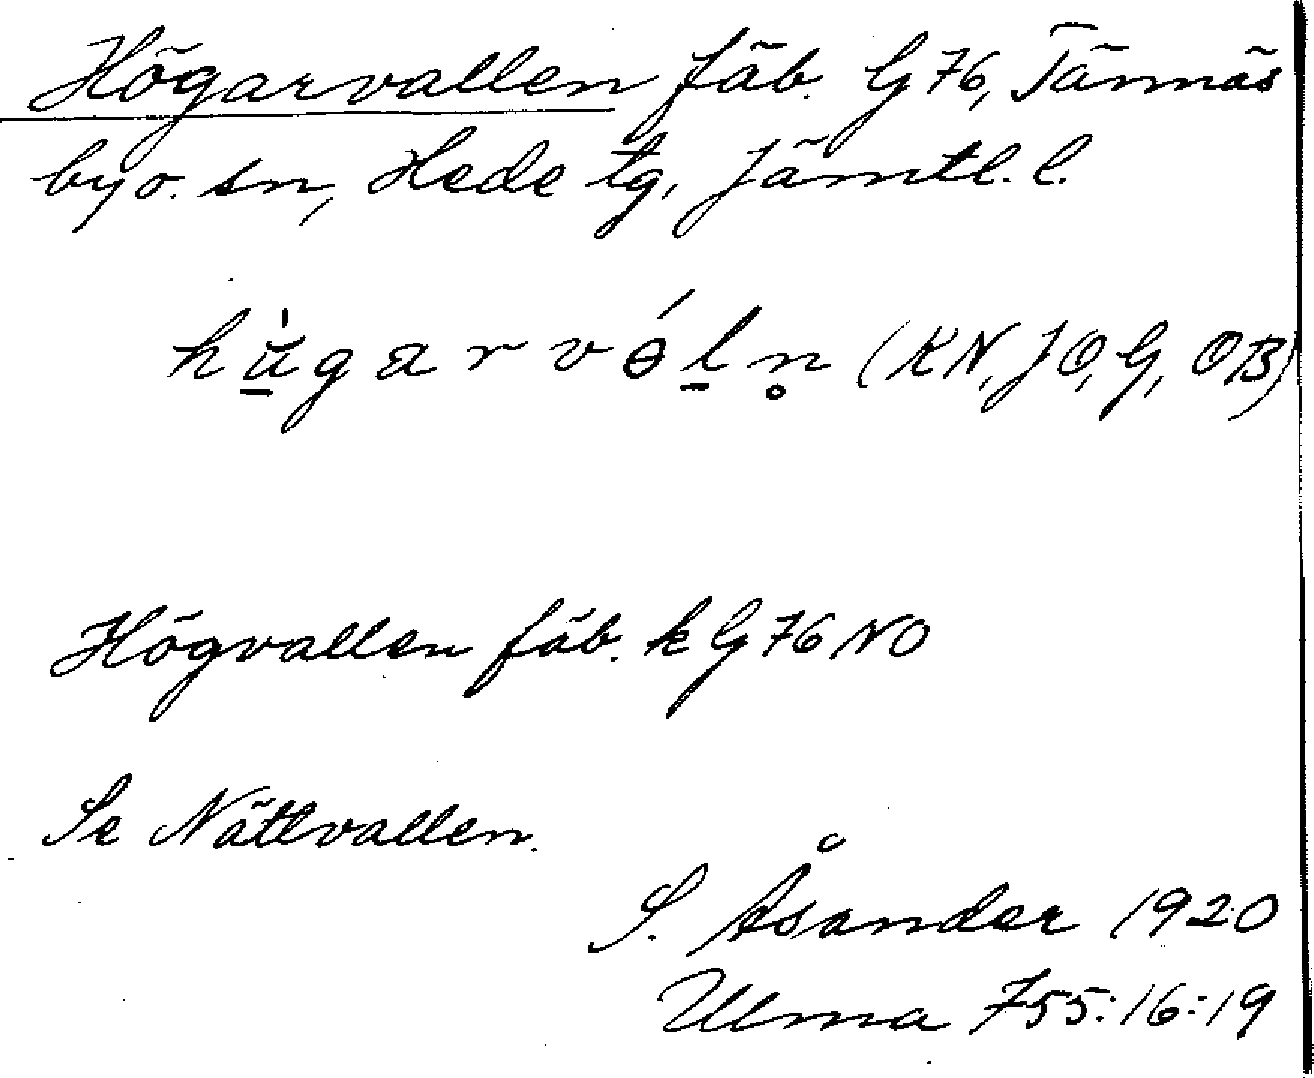 Högarvallen fäb. G 76, Tännäs
by o. sn, Hede tg, Jämtl. l.
hù̱garvǿḻn̥ (KN, JO, G, OB)
Högvallen fäb. k G 76 NO
Se Nättvallen.
S. Åsander 1920
Ulma 755:16:19